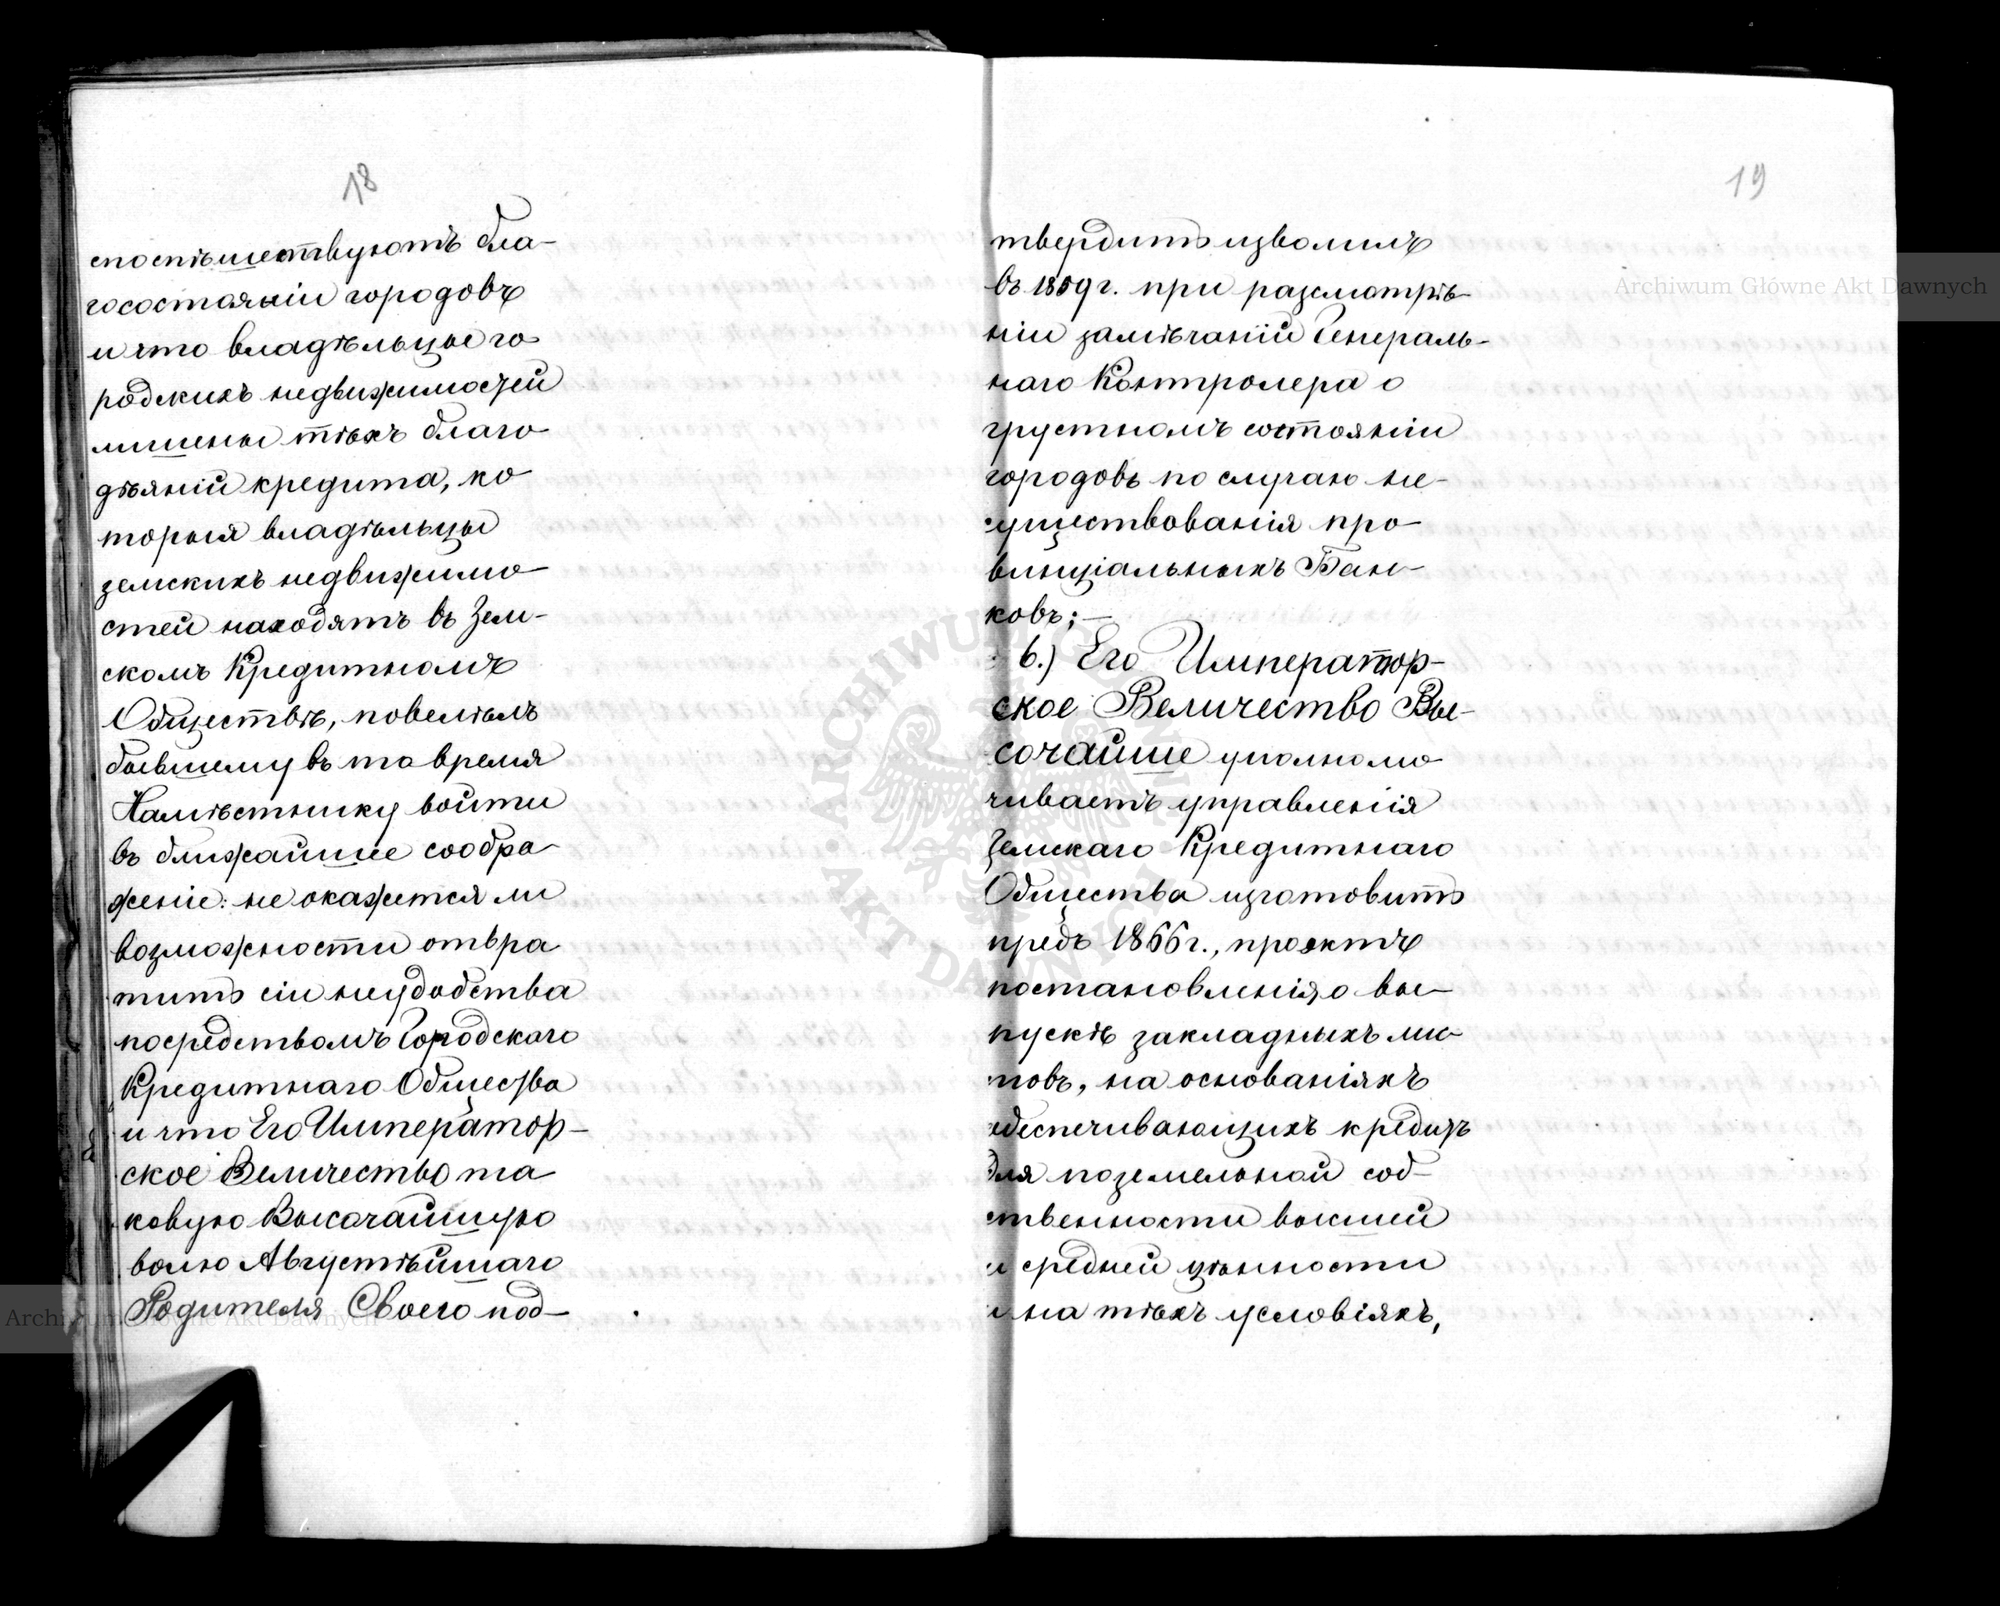 18
споспѣшествуютъ бла-
госостоянiи городовъ
и что владѣльцы го-
родскихъ недвижимостей
лишены тѣхъ благо-
дѣянiй кредита, ко-
торыя владѣльцы
земскихъ недвижимо-
стей находятъ въ Зем-
скомъ Кредитномъ
Обществѣ, повелѣлъ
бывшему въ то время
Намѣстнику войти
въ ближайшее сообра-
женiе: не окажется ли
возможности отвра-
тить сiи неудобства
посредствомъ Городскаго
Кредитнаго Общества
и что Его Император-
ское Величество та-
ковую Высочайшую
волю Августѣйшаго
Родителя Своего под-
19
твердить изволилъ
въ 1859 г. при разсмотрѣ-
нiи замѣчанiй Генераль-
наго Контролера о
грустномъ состоянiи
городовъ по случаю не-
существованiя про-
винцiальныхъ Бан-
ковъ; —
6.) Его Император-
ское Величество Вы-
сочайше уполномо-
чиваетъ управленiя
Земскаго Кредитнаго
Общества изготовить
предъ 1866 г., проэктъ
постановленiя о вы-
пускѣ закладныхъ лис-
товъ, на основанiяхъ
обеспечивающихъ кредитъ
для поземельной соб-
ственности высшей
и средней цѣнности
и на тѣхъ условiяхъ,
Archiwum Główne Akt Dawnych
Archiwum Główne Akt Dawnych
ARCHIWUM GŁÓWNE AKT DAWNYCH